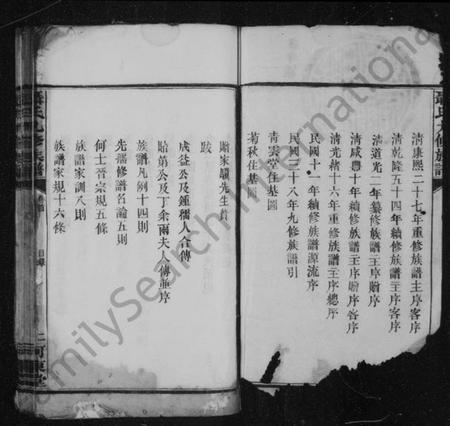 清康熙二十七年重修族譜主序客序
清乾隆五十四年續修族譜主序客序
清道光二年纂修族譜主序贈序
清咸豐十年續修族譜主序贈序客序
清光緒十六年重修族譜主序總序
民國十一年續修族譜源流序
民國三十八年九修族譜引
青雲堂住基圖
菊秋住基
贈家驥先生
跋
成益公及鍾孺人合傳
貽第公及丁余兩夫人傳並序
族譜凡例十四則
先儒修譜名論五則
何士晉宗規五條
族譜家訓八則
族譜家規十六條
九修族譜
目錄
FamilySearch International